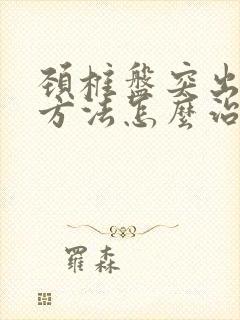 頚椎盤突出
方法怎麼治
羅森